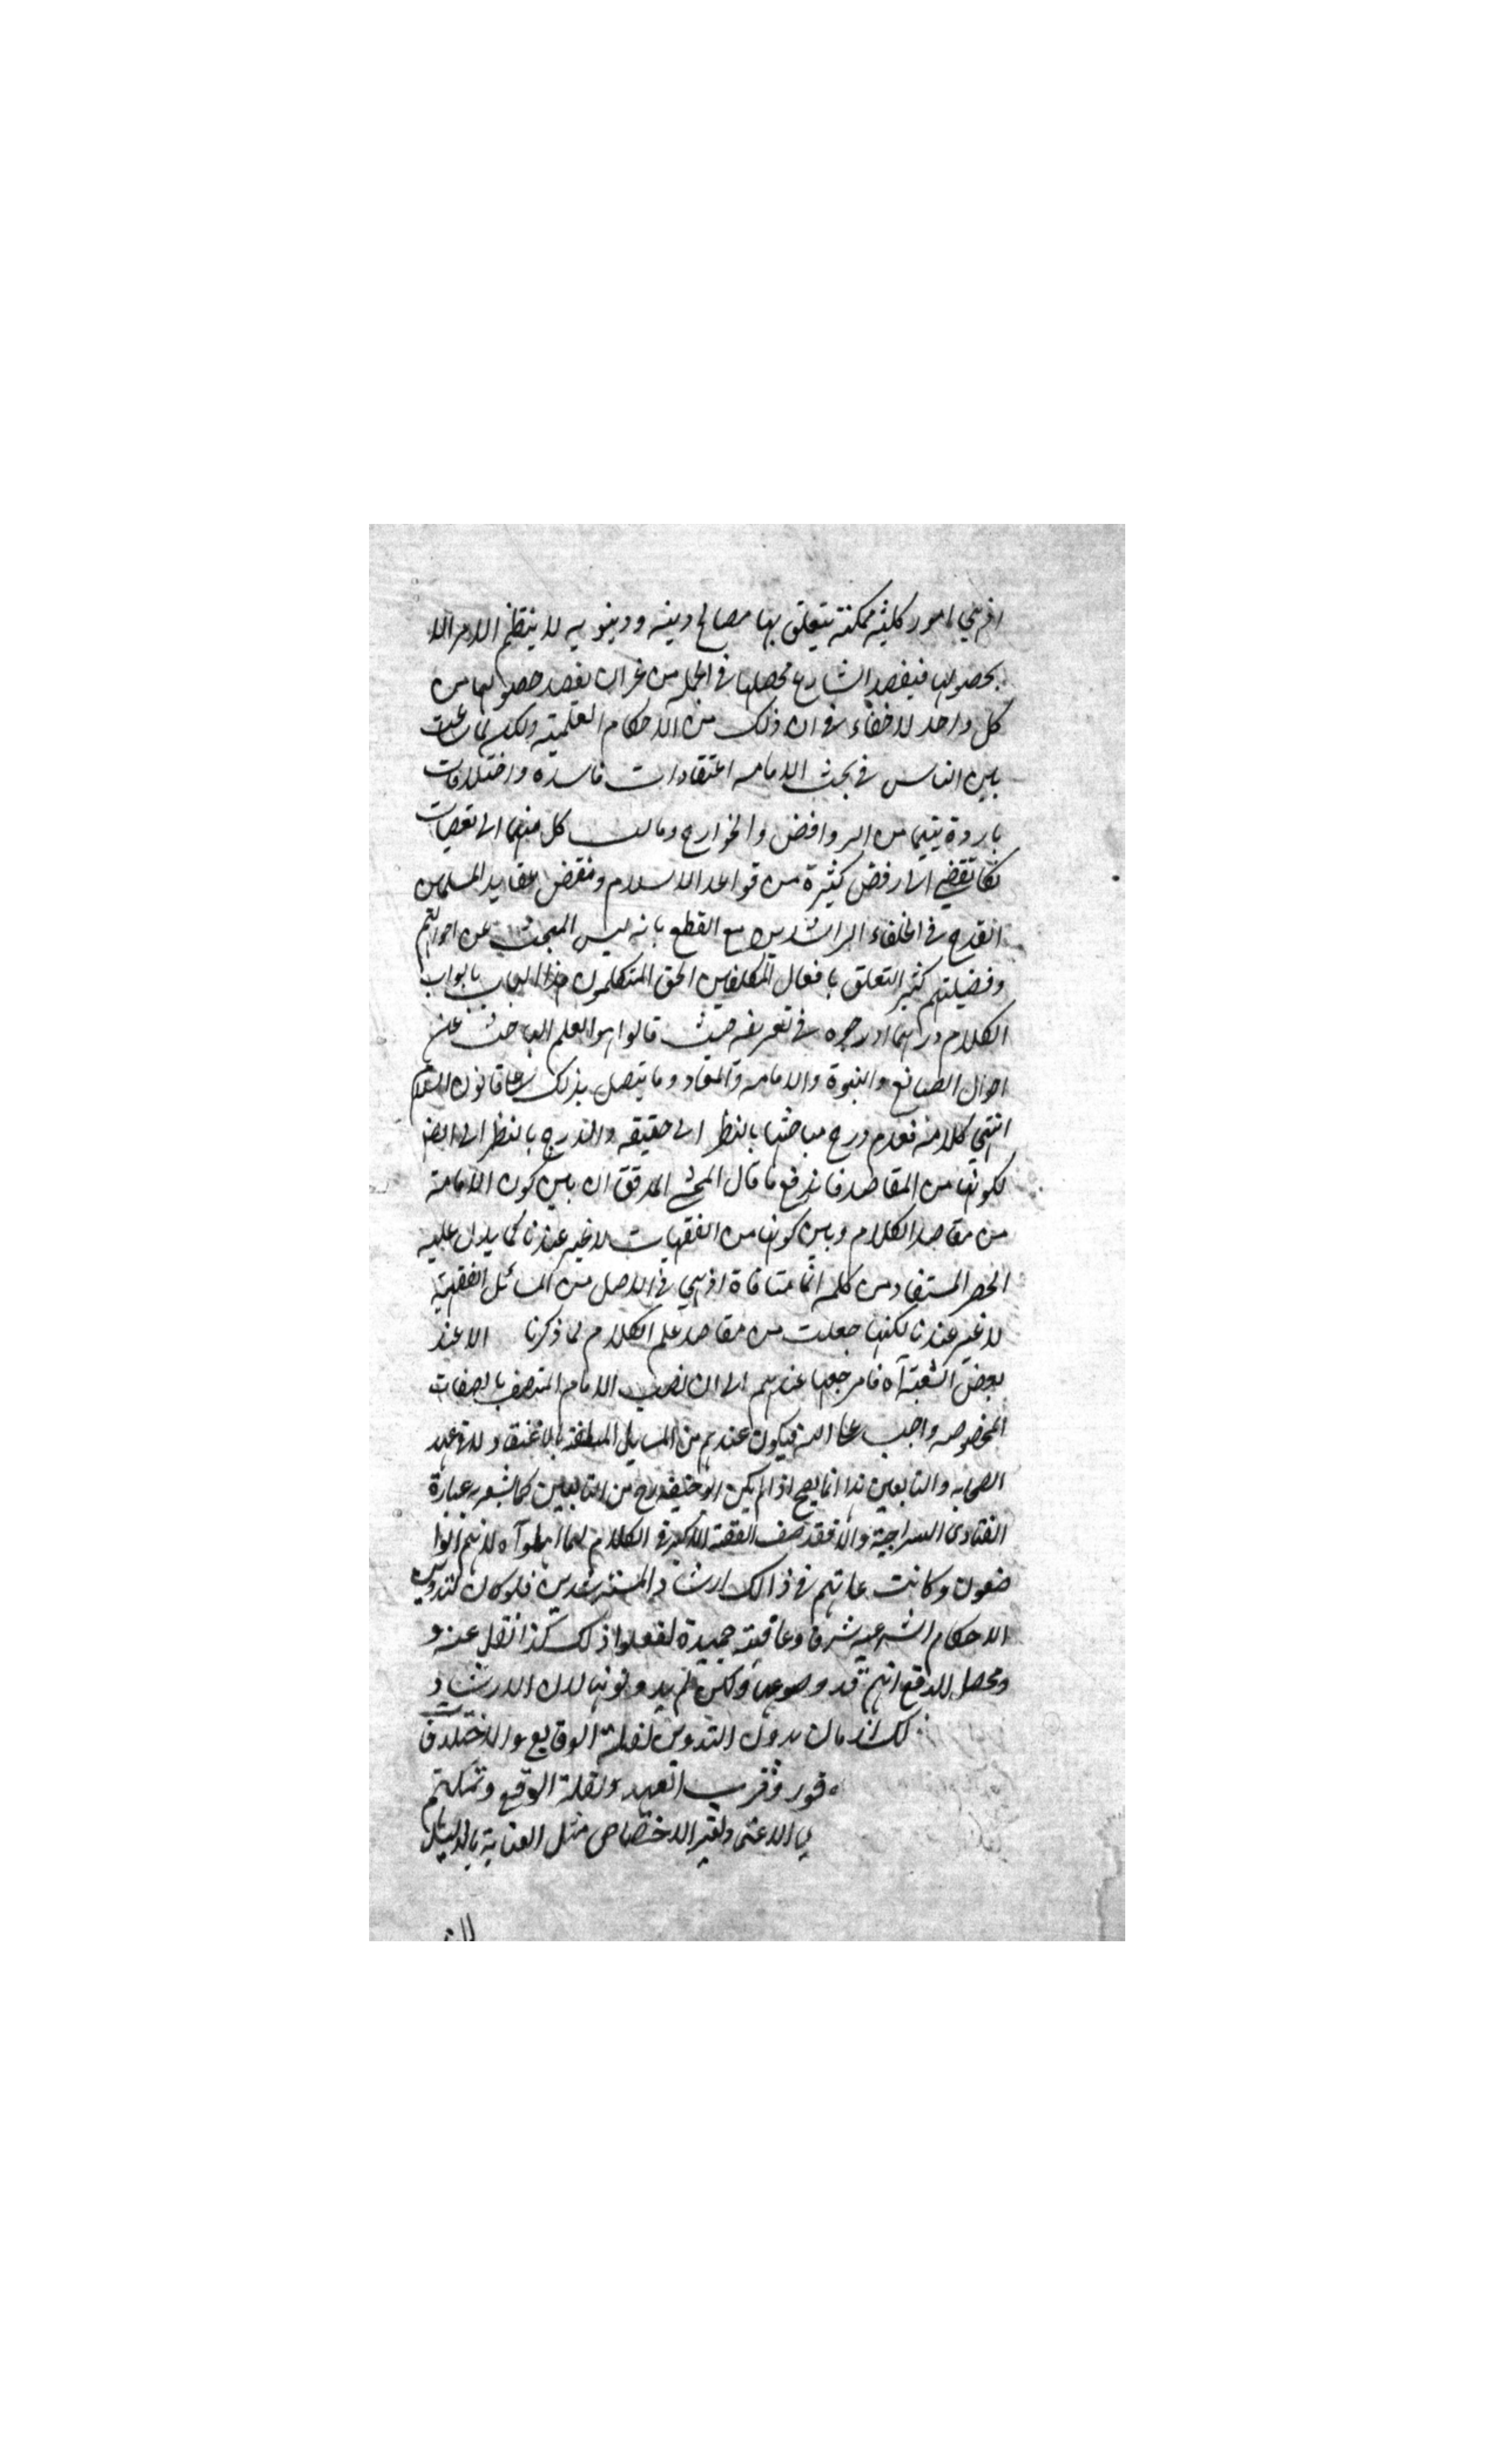 اذ هي امور كلية ممكنة يتعلق بها مصالح دينيه ودينويه لا ينتظم الامر الا
بحصولها فيقصد الشارع تحصلها في الجملة من غير ان يقصد حصولها من
كل واحد لا خفاء في ان ذلك من الاحكام العلمية ولكن لما شاعت
بين الناس في بحث الامامه اعتقادات فاسدة واختلافات
باردة سيما من الروافض والخوارج ومالت كل منهما الى تعصبات
تكاد تفضي الى رفض كثيرة من قواعد الاسلام ونقض عقايد المسلمين
القدح في الخلفاء الراشدين مع القطع بانه ليس المبحث عن احوالهم
وفضيلتهم كثير التعلق بافعال المكلفين الحق المتكلمون هذا الباب بابواب
الكلام وربما ادرجوه في تعريفه حيث قالوا هو العلم الباحث عن
احوال الصانع والنبوة والامامه والمعاد وما يتصل بذلك على قانون الاسلام
انتهى كلامه فعدم درج مباحثها بالنظر الى حقيقه والدرج بالنظر الى
لكونها من المقاصد فاندفع ما قال المحشي المدقق ان بين كون الامامة
من مقاصد الكلام وبين كونها من الفقهيات لا غير عندنا كما يدل عليه
الحصر المستفاد من كلمه انما منافاة اذ هي في الاصل من المسائل الفقهية
لا غير عندنا لكنها جعلت من مقاصد علم الكلام لما ذكرنا الا عند
بعض الشيعة آه فا مرجعها عندهم الى ان نصب الامام المتصف بالصفات
المخصوصه واجب على الله فيكون عندهم من المسايل المتعلقة بالاعتقاد ولا في عهد
الصحابه والتابعين هذا انما يصح اذا لم يكن ابو حنيفه رح من التابعين كما يشعر به عبارة
الفتاوى السراجية والا فقد صنف الفقه الاكبر في الكلام لما اهملوا آه لانهم كانوا
وكانت عادتهم في ذالك ارشاد المسترشدين فلو كان لتدوين
الاحكام الشرعيه شرفا وعاقبته حميدة لفعلوا ذلك كذا نقل عنه و
ومحصل الدفع انهم قد وضوعها ولكن لم يدونوها لان الارشاد
الزمان بدون التدوين لقلة الوقايع والاختلاف
وقرب العهد ولقلة الوقايع وتمكنهم
الاختصاص مثل العناية بالدليل